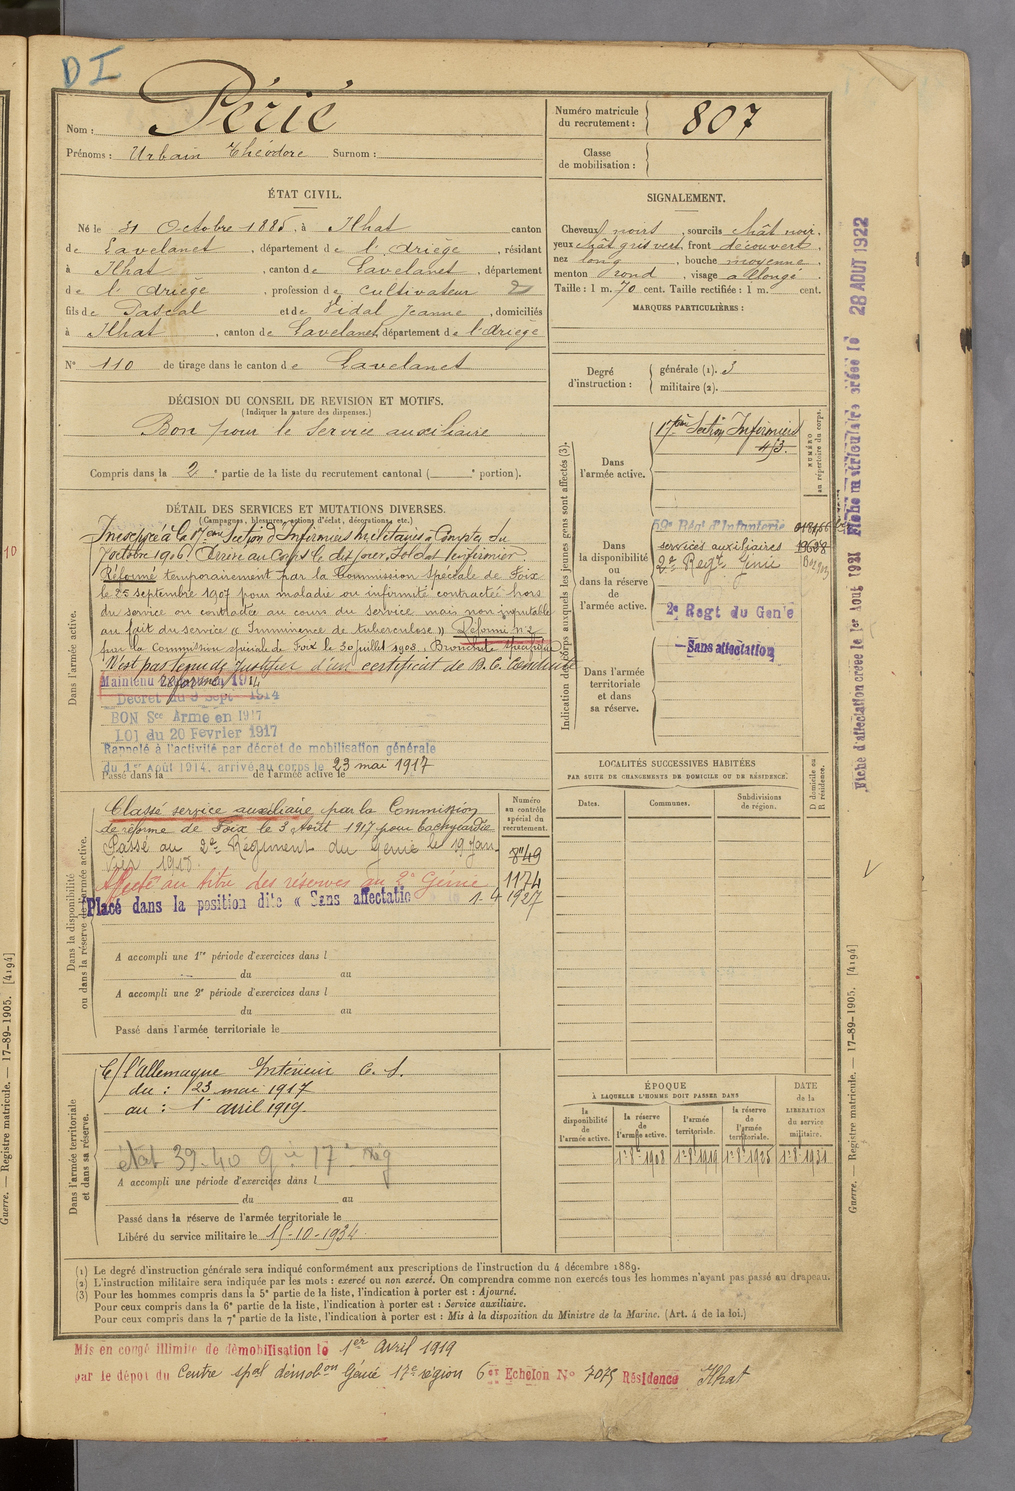 D I
Nom : Périé
Prénoms : Urbain Théodore Surnom :
Numéro matricule du recrutement : 807
Classe de mobilisation :
ÉTAT CIVIL.
Né le 31 Octobre 1885, à Ilhat canton
de Lavelanet, département de l'Ariège, résidant
à Ilhat, canton de Lavelanet, département
de l'Ariège, profession de cultivateur
fils de Pascal et de Vidal Jeanne, domiciliés
à Ilhat, canton de Lavelanet, département de l'Ariège
N° 110 de tirage dans le canton de Lavelanet
SIGNALEMENT.
Cheveux noirs, sourcils chât noir,
yeux chât gris vert, front découvert,
nez long, bouche moyenne,
menton rond, visage allongé.
Taille : 1 m. 70 cent. Taille rectifiée : 1 m. cent.
MARQUES PARTICULIÈRES :
Degré d'instruction : générale (1). 3
militaire (2).
DÉCISION DU CONSEIL DE REVISION ET MOTIFS.
(Indiquer la nature des dispenses.)
Bon pour le service auxiliaire
Compris dans la 2e partie de la liste du recrutement cantonal ( e portion).
DÉTAIL DES SERVICES ET MUTATIONS DIVERSES.
(Campagnes, blessures, actions d'éclat, décorations, etc.)
Dans l'armée active.
Incorporé à la 17ème Section d'Infirmiers Militaires à Compter du
7 octobre 1906. Arrivé au Corps le dit jour, Soldat infirmier.
Réformé temporairement par la Commission Spéciale de Foix
le 25 septembre 1907 pour maladie ou infirmité contractée hors
du service ou contractée au cours du service mais non imputable
au fait du service « Imminence de tuberculose » Réformé n° 2
par la Commission spéciale de Foix le 30 juillet 1908. Bronchite spécifique
N'est pas tenu de justifier d'un certificat de B.C. Conduite
Maintenu réformé 1914
Décret du 9 Sept. 1914
BON Sce Armé en 1917
LOI du 20 Février 1917
Rappelé à l'activité par décret de mobilisation générale
du 1er Août 1914, arrivé au corps le 23 mai 1917
Passé dans la de l'armée active le
Indication des corps auxquels les jeunes gens sont affectés (3).
NUMÉRO au répertoire du corps.
Dans l'armée active.
17ème Section Infirmiers
Dans la disponibilité ou dans la réserve de l'armée active.
59e Régt d'Infanterie
services auxiliaires
2e Régt Génie
2e Regt du Génie
Sans affectation
Dans l'armée territoriale et dans sa réserve.
Dans la disponibilité ou dans la réserve de l'armée active.
Classé service auxiliaire par la Commission
de réforme de Foix le 3 Août 1917 pour tachycardie.
Passé au 2e Régiment du Génie le 19 Jan-
vier 1918.
Affecté au titre des réserves au 2e Génie
Placé dans la position dite « Sans affectatio 1-4 1927
Numéro au contrôle spécial du recrutement.
1174
A accompli une 1re période d'exercices dans l
du au
A accompli une 2e période d'exercices dans l
du au
Passé dans l'armée territoriale le
LOCALITÉS SUCCESSIVES HABITÉES
PAR SUITE DE CHANGEMENTS DE DOMICILE OU DE RÉSIDENCE.
Dates. Communes. Subdivisions de région. D domicile ou R résidence.
Dans l'armée territoriale et dans sa réserve.
C/ l'Allemagne Intérieur C. S.
du : 23 mai 1917
au : 1er avril 1919
état 39-40 17e Rég
A accompli une période d'exercices dans l
du au
Passé dans la réserve de l'armée territoriale le
Libéré du service militaire le 15-10-1934
ÉPOQUE
À LAQUELLE L'HOMME DOIT PASSER DANS
la disponibilité de l'armée active. la réserve de l'armée active. l'armée territoriale. la réserve de l'armée territoriale.
DATE de la LIBÉRATION du service militaire.
1er 8bre 1908 1er 8bre 1919 1er 8bre 1925 1er 8bre 1931
(1) Le degré d'instruction générale sera indiqué conformément aux prescriptions de l'instruction du 4 décembre 1889.
(2) L'instruction militaire sera indiquée par les mots : exercé ou non exercé. On comprendra comme non exercés tous les hommes n'ayant pas passé au drapeau.
(3) Pour les hommes compris dans la 5e partie de la liste, l'indication à porter est : Ajourné.
Pour ceux compris dans la 6e partie de la liste, l'indication à porter est : Service auxiliaire.
Pour ceux compris dans la 7e partie de la liste, l'indication à porter est : Mis à la disposition du Ministre de la Marine. (Art. 4 de la loi.)
Mis en congé illimité de démobilisation le 1er Avril 1919
par le dépôt du Centre spal démobon Génie 17e région 6er Echelon N° 7075 Résidence Ilhat
Fiche d'affectation créée le 1er Août 1921 Fiche matriculaire créée le 28 AOUT 1922
Guerre. — Registre matricule. — 17-89-1905. [4194]
Guerre. — Registre matricule. — 17-89-1905. [4194]
10